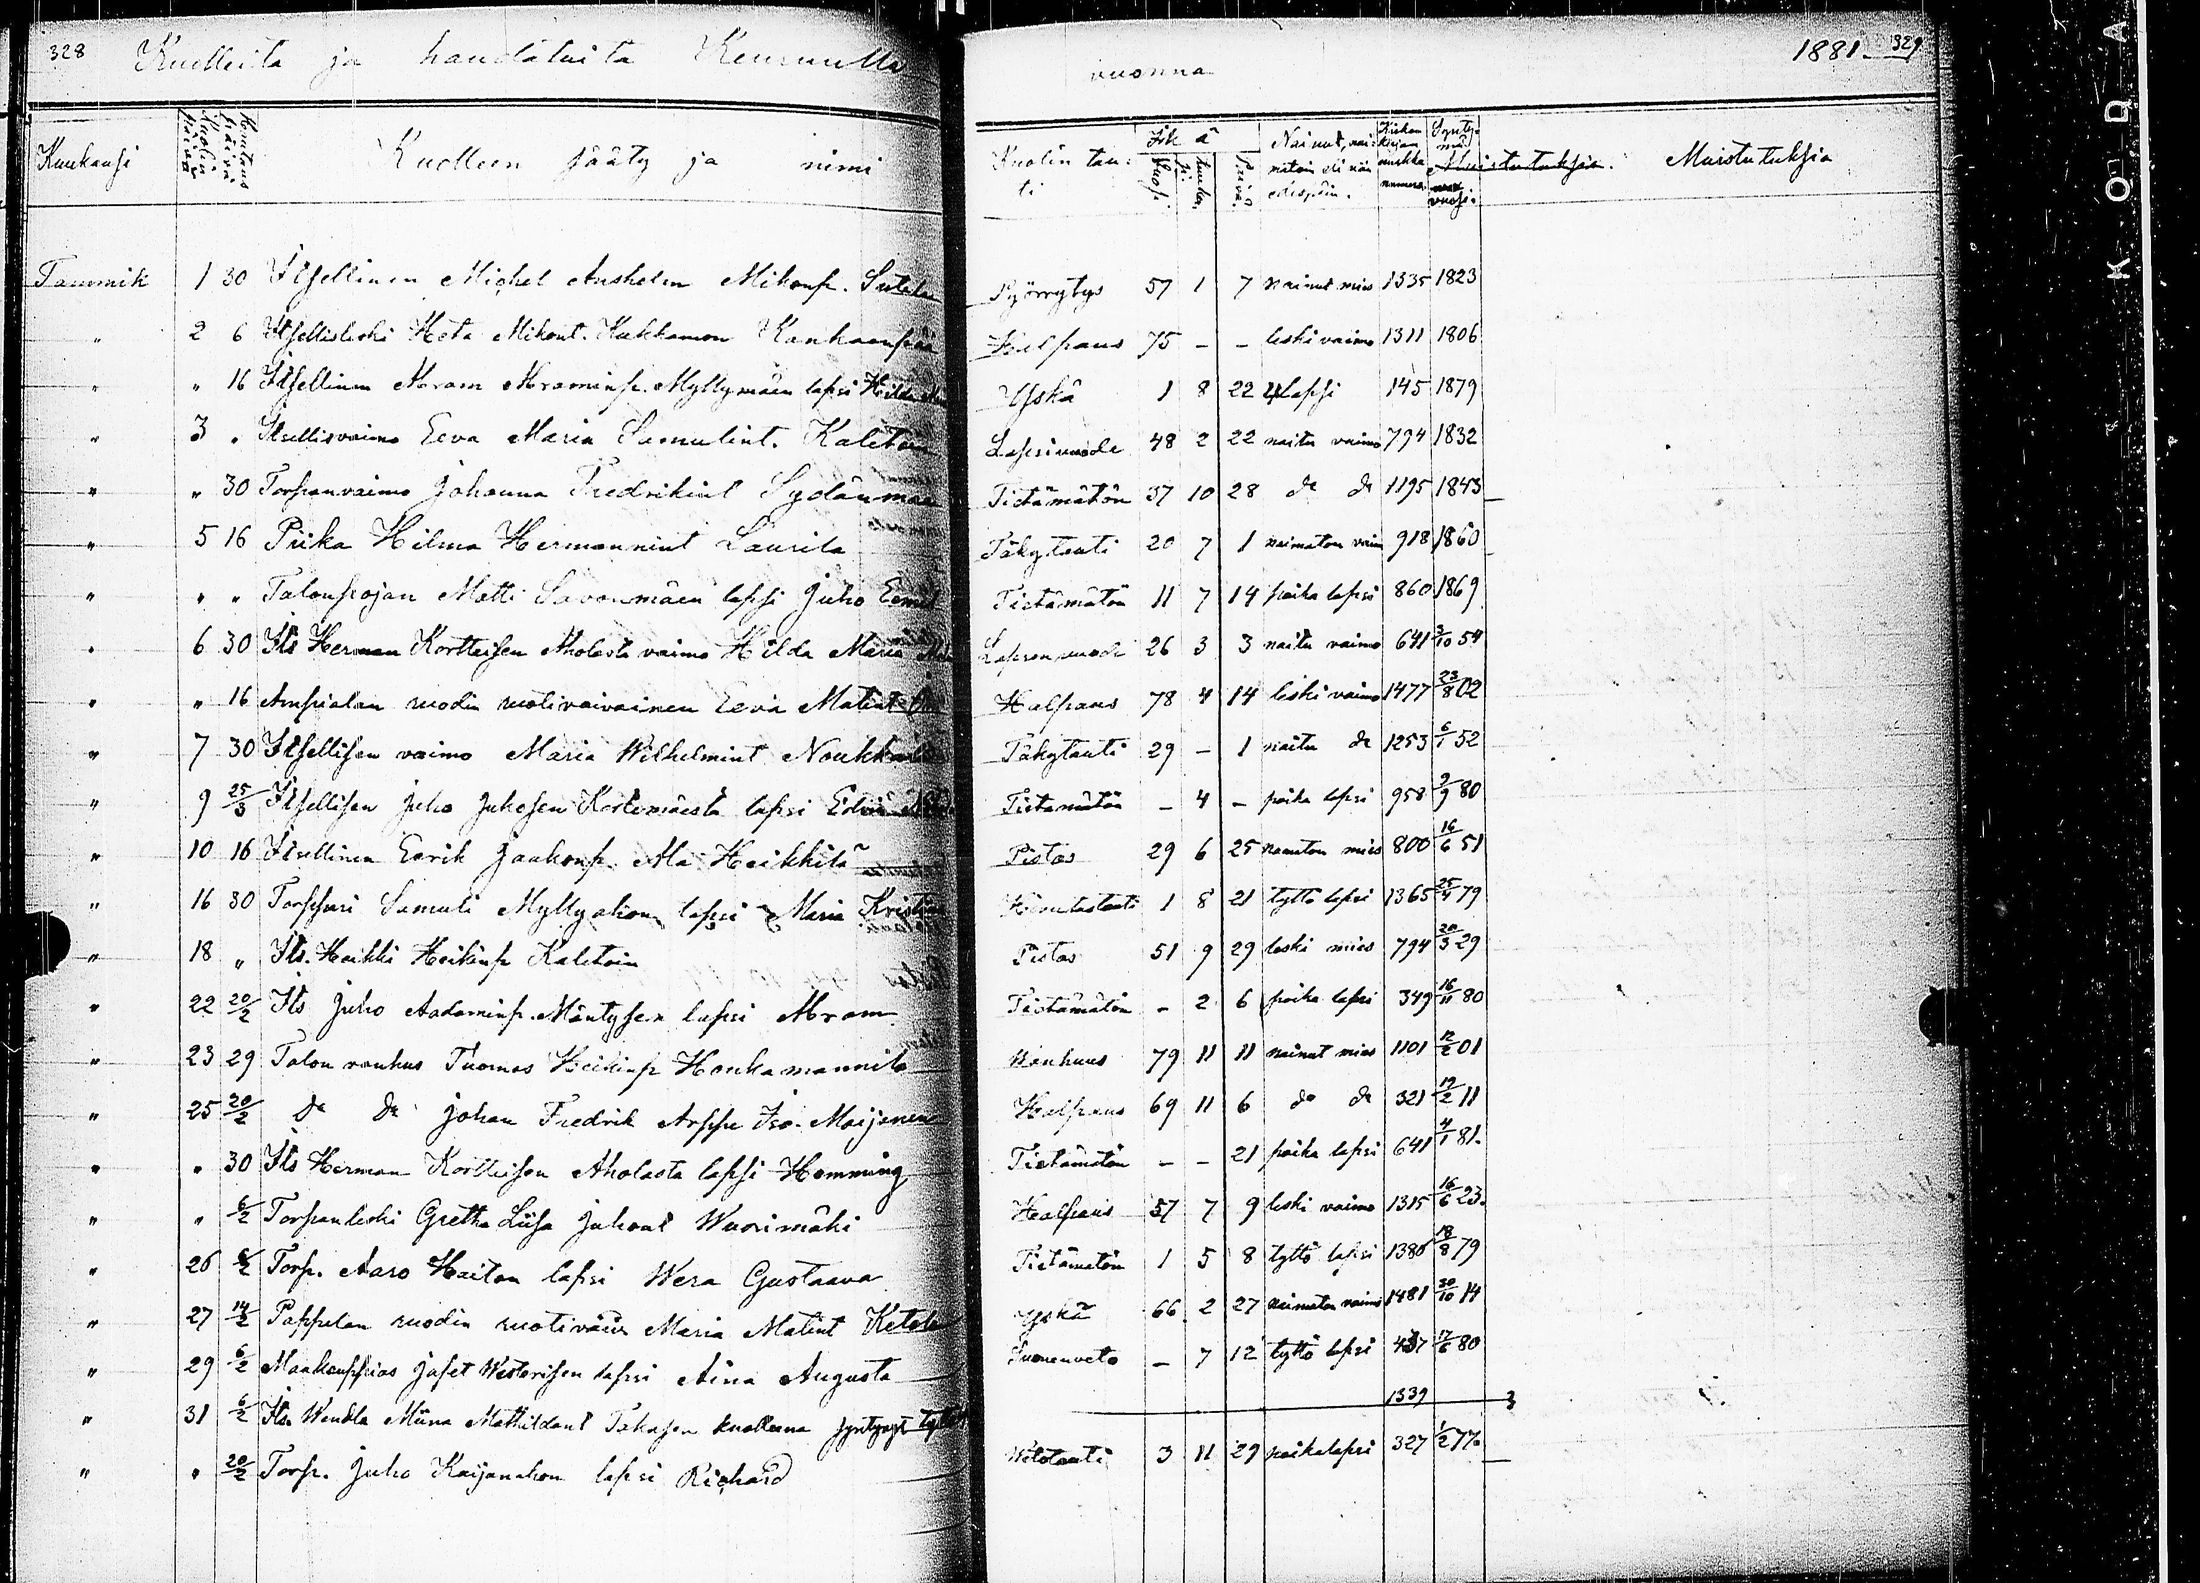 328 Kuolleita ja haudatuita Keuruulla vuonna 1881. 329
Kuukausi Kuolin päivä Hautaus päivä Kuolleen sääty ja nimi Kuolin tau: ti Ikä Vuosi. Kuuka. Päivä Nainut, nai: matoin eli nai edespäin. Kirkon kirjan sivukka numero. Synty: mä vuosi. Muistutuksia. Muistutuksia
Tammik 1 30 Itsellinen Michel Anshelm Mikonp. Sutela Pyörrytys 57 1 7 nainut mies 1335 1823
" 2 6 Itsellisleski Heta Mikont. Kukkamon Kankaanpää Halpaus 75 - - leski vaimo 1311 1806
" " 16 Itsellinen Abram Abraminp. Myllymäen lapsi Hilda Yskä 1 8 22 lapsi 145 1879
" 3 " Itsellisvaimo Eeva Maria Samulint. Kaleton Lapsivuode 48 2 22 naitu vaimo 794 1832
" " 30 Torpanvaimo Johanna Fredrikint Sydänmaa Tietämätön 37 10 28 do do 1195 1843
" 5 16 Piika Hilma Hermannint Laurila Täkytauti 20 7 1 naimaton vaim 918 1860
" " " Talonpojan Matti Savonmäen lapsi Juho Eemil Tietämätön 11 7 14 poika lapsi 860 1869
" 6 30 Its Herman Kortteisen Aholasta vaimo Hilda Maria Lapsenvuode 26 3 3 naitu vaimo 641 3/10 54
" " 16 Ampialan ruodin ruotivaivainen Eeva Matint Halpaus 78 4 14 leski vaimo 1477 23/8 02
" 7 30 Itsellisen vaimo Maria Wilhelmint Noukka Täkytauti 29 - 1 naitu do 1253 6/1 52
" 9 25/3 Itsellisen Juho Juhosen Kortemäestä lapsi Edvin Tietämätön - 4 - poika lapsi 958 9/9 80
" 10 16 Itsellinen Eerik Jaakonp. Ala Heikkilä Pistos 29 6 25 naimaton mies 800 16/6 51
" 16 30 Torppari Samuli Myllyahon lapsi Maria Kristina 1 8 21 tyttö lapsi 1365 25/4 79
" 18 " Its. Heikki Heikinp Kaletoin Pistos 51 9 29 leski mies 794 20/3 29
" 22 20/2 Its Juho Aadaminp. Mäntysen lapsi Abram Tietämätön - 2 6 poika lapsi 349 16/11 80
" 23 29 Talon vanhus Tuomas Heikinp Honkamannila Wanhuus 79 11 11 nainut mies 1101 12/2 01
" 25 20/2 do do Johan Fredrik Arppe Iso-Maijanen Halpaus 69 11 6 do do 321 19/2 11
" " 30 Its Herman Kortteisen Aholasta lapsi Hemming Tietämätön - - 21 poika lapsi 641 4/1 81.
" " 6/2 Torpanleski Gretha Liisa Juhont Wuorimäki Halpaus 57 7 9 leski vaimo 1315 16/6 23.
" 26 6/2 Torp. Aaro Haiton lapsi Wera Gustaava Tietämätön 1 5 8 tyttö lapsi 1386 18/8 79
" 27 14/2 Pappilan ruodin ruotivaiv Maria Matint Ketola Yskä 66 2 27 naimaton vaimo 1481 30/10 14
" 29 6/2 Maakauppias Jafet Westerisen lapsi Aina Augusta Suonenveto - 7 12 tyttö lapsi 437 17/6 80
" 31 6/2 Its. Wendla Miina Mathildant Takasen kuolleena syntynyt 1339
" " 20/2 Torp. Juho Kaijanahon lapsi Richard Wetotauti 3 11 29 poikalapsi 327 1/2 77.
KODA